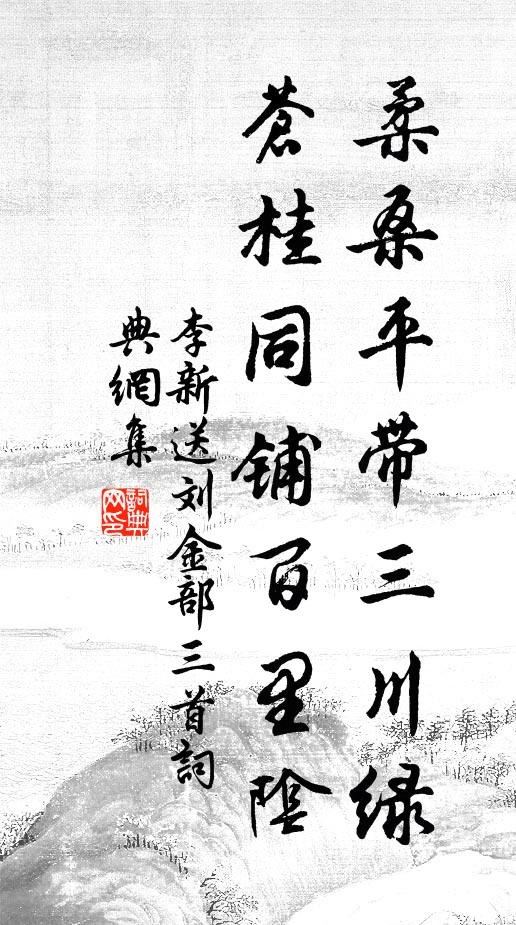 柔桑平带三川绿
蒼桂同铺百里陰
李新送刘金部三首詞
典網集
詞典网印